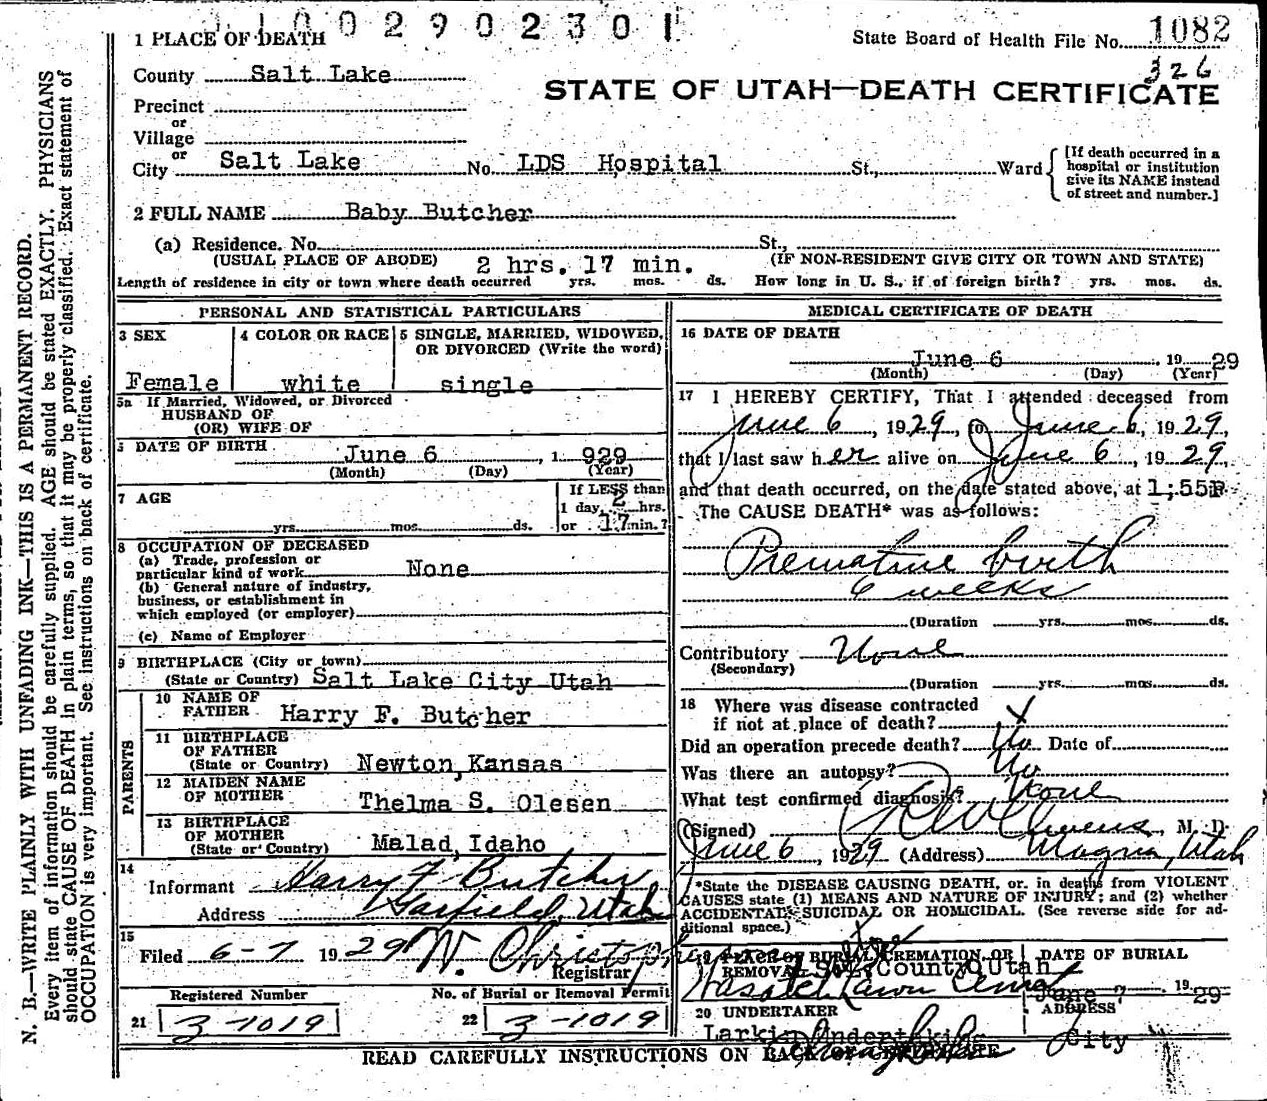 1 1 0 0 2 9 0 2 3 0 1
1 PLACE OF DEATH
State Board of Health File No. 1082
326
County Salt Lake
STATE OF UTAH—DEATH CERTIFICATE
Precinct
or
Village
or
City Salt Lake No. LDS Hospital St., Ward
[If death occurred in a
hospital or institution
give its NAME instead
of street and number.]
2 FULL NAME Baby Butcher
(a) Residence. No. St.,
(USUAL PLACE OF ABODE) 2 hrs. 17 min. (IF NON-RESIDENT GIVE CITY OR TOWN AND STATE)
Length of residence in city or town where death occurred yrs. mos. ds. How long in U. S., if of foreign birth? yrs. mos. ds.
PERSONAL AND STATISTICAL PARTICULARS
3 SEX
Female
4 COLOR OR RACE
white
5 SINGLE, MARRIED, WIDOWED,
OR DIVORCED (Write the word)
single
5a If Married, Widowed, or Divorced
HUSBAND OF
(OR) WIFE OF
6 DATE OF BIRTH June 6, 1 929
(Month) (Day) (Year)
7 AGE
yrs. mos. ds.
If LESS than
1 day, 2 hrs.
or 17 min.?
8 OCCUPATION OF DECEASED
(a) Trade, profession or
particular kind of work None
(b) General nature of industry,
business, or establishment in
which employed (or employer)
(c) Name of Employer
9 BIRTHPLACE (City or town)
(State or Country) Salt Lake City Utah
PARENTS
10 NAME OF
FATHER Harry F. Butcher
11 BIRTHPLACE
OF FATHER
(State or Country) Newton, Kansas
12 MAIDEN NAME
OF MOTHER Thelma S. Olesen
13 BIRTHPLACE
OF MOTHER
(State or Country) Malad, Idaho
14
Informant Harry F Butcher
Address Garfield, Utah
15
Filed 6-7 1929 W. Christopherson
Registrar
Registered Number
21 3-1019
No. of Burial or Removal Permit
22 3-1019
MEDICAL CERTIFICATE OF DEATH
16 DATE OF DEATH
June 6 19 29
(Month) (Day) (Year)
17 I HEREBY CERTIFY, That I attended deceased from
June 6, 1929, to June 6, 1929,
that I last saw her alive on June 6, 1929,
and that death occurred, on the date stated above, at 1;55P
The CAUSE DEATH* was as follows:
Premature birth
6 weeks
(Duration yrs. mos. ds.
Contributory None
(Secondary)
(Duration yrs. mos. ds.
18 Where was disease contracted
if not at place of death? X
Did an operation precede death? No Date of
Was there an autopsy? No
What test confirmed diagnosis? None
(Signed) M. D.
June 6, 1929 (Address) Magna, Utah
*State the DISEASE CAUSING DEATH, or, in deaths from VIOLENT
CAUSES state (1) MEANS AND NATURE OF INJURY; and (2) whether
ACCIDENTAL, SUICIDAL OR HOMICIDAL. (See reverse side for ad-
ditional space.)
19 PLACE OF BURIAL, CREMATION, OR
REMOVAL County Utah
Wasatch Lawn
DATE OF BURIAL
June 7 19 29
20 UNDERTAKER
Larkin Undertaking
ADDRESS
City
READ CAREFULLY INSTRUCTIONS ON BACK OF CERTIFICATE
N. B.—WRITE PLAINLY WITH UNFADING INK—THIS IS A PERMANENT RECORD.
Every item of information should be carefully supplied. AGE should be stated EXACTLY. PHYSICIANS
should state CAUSE OF DEATH in plain terms, so that it may be properly classified. Exact statement of
OCCUPATION is very important. See instructions on back of certificate.